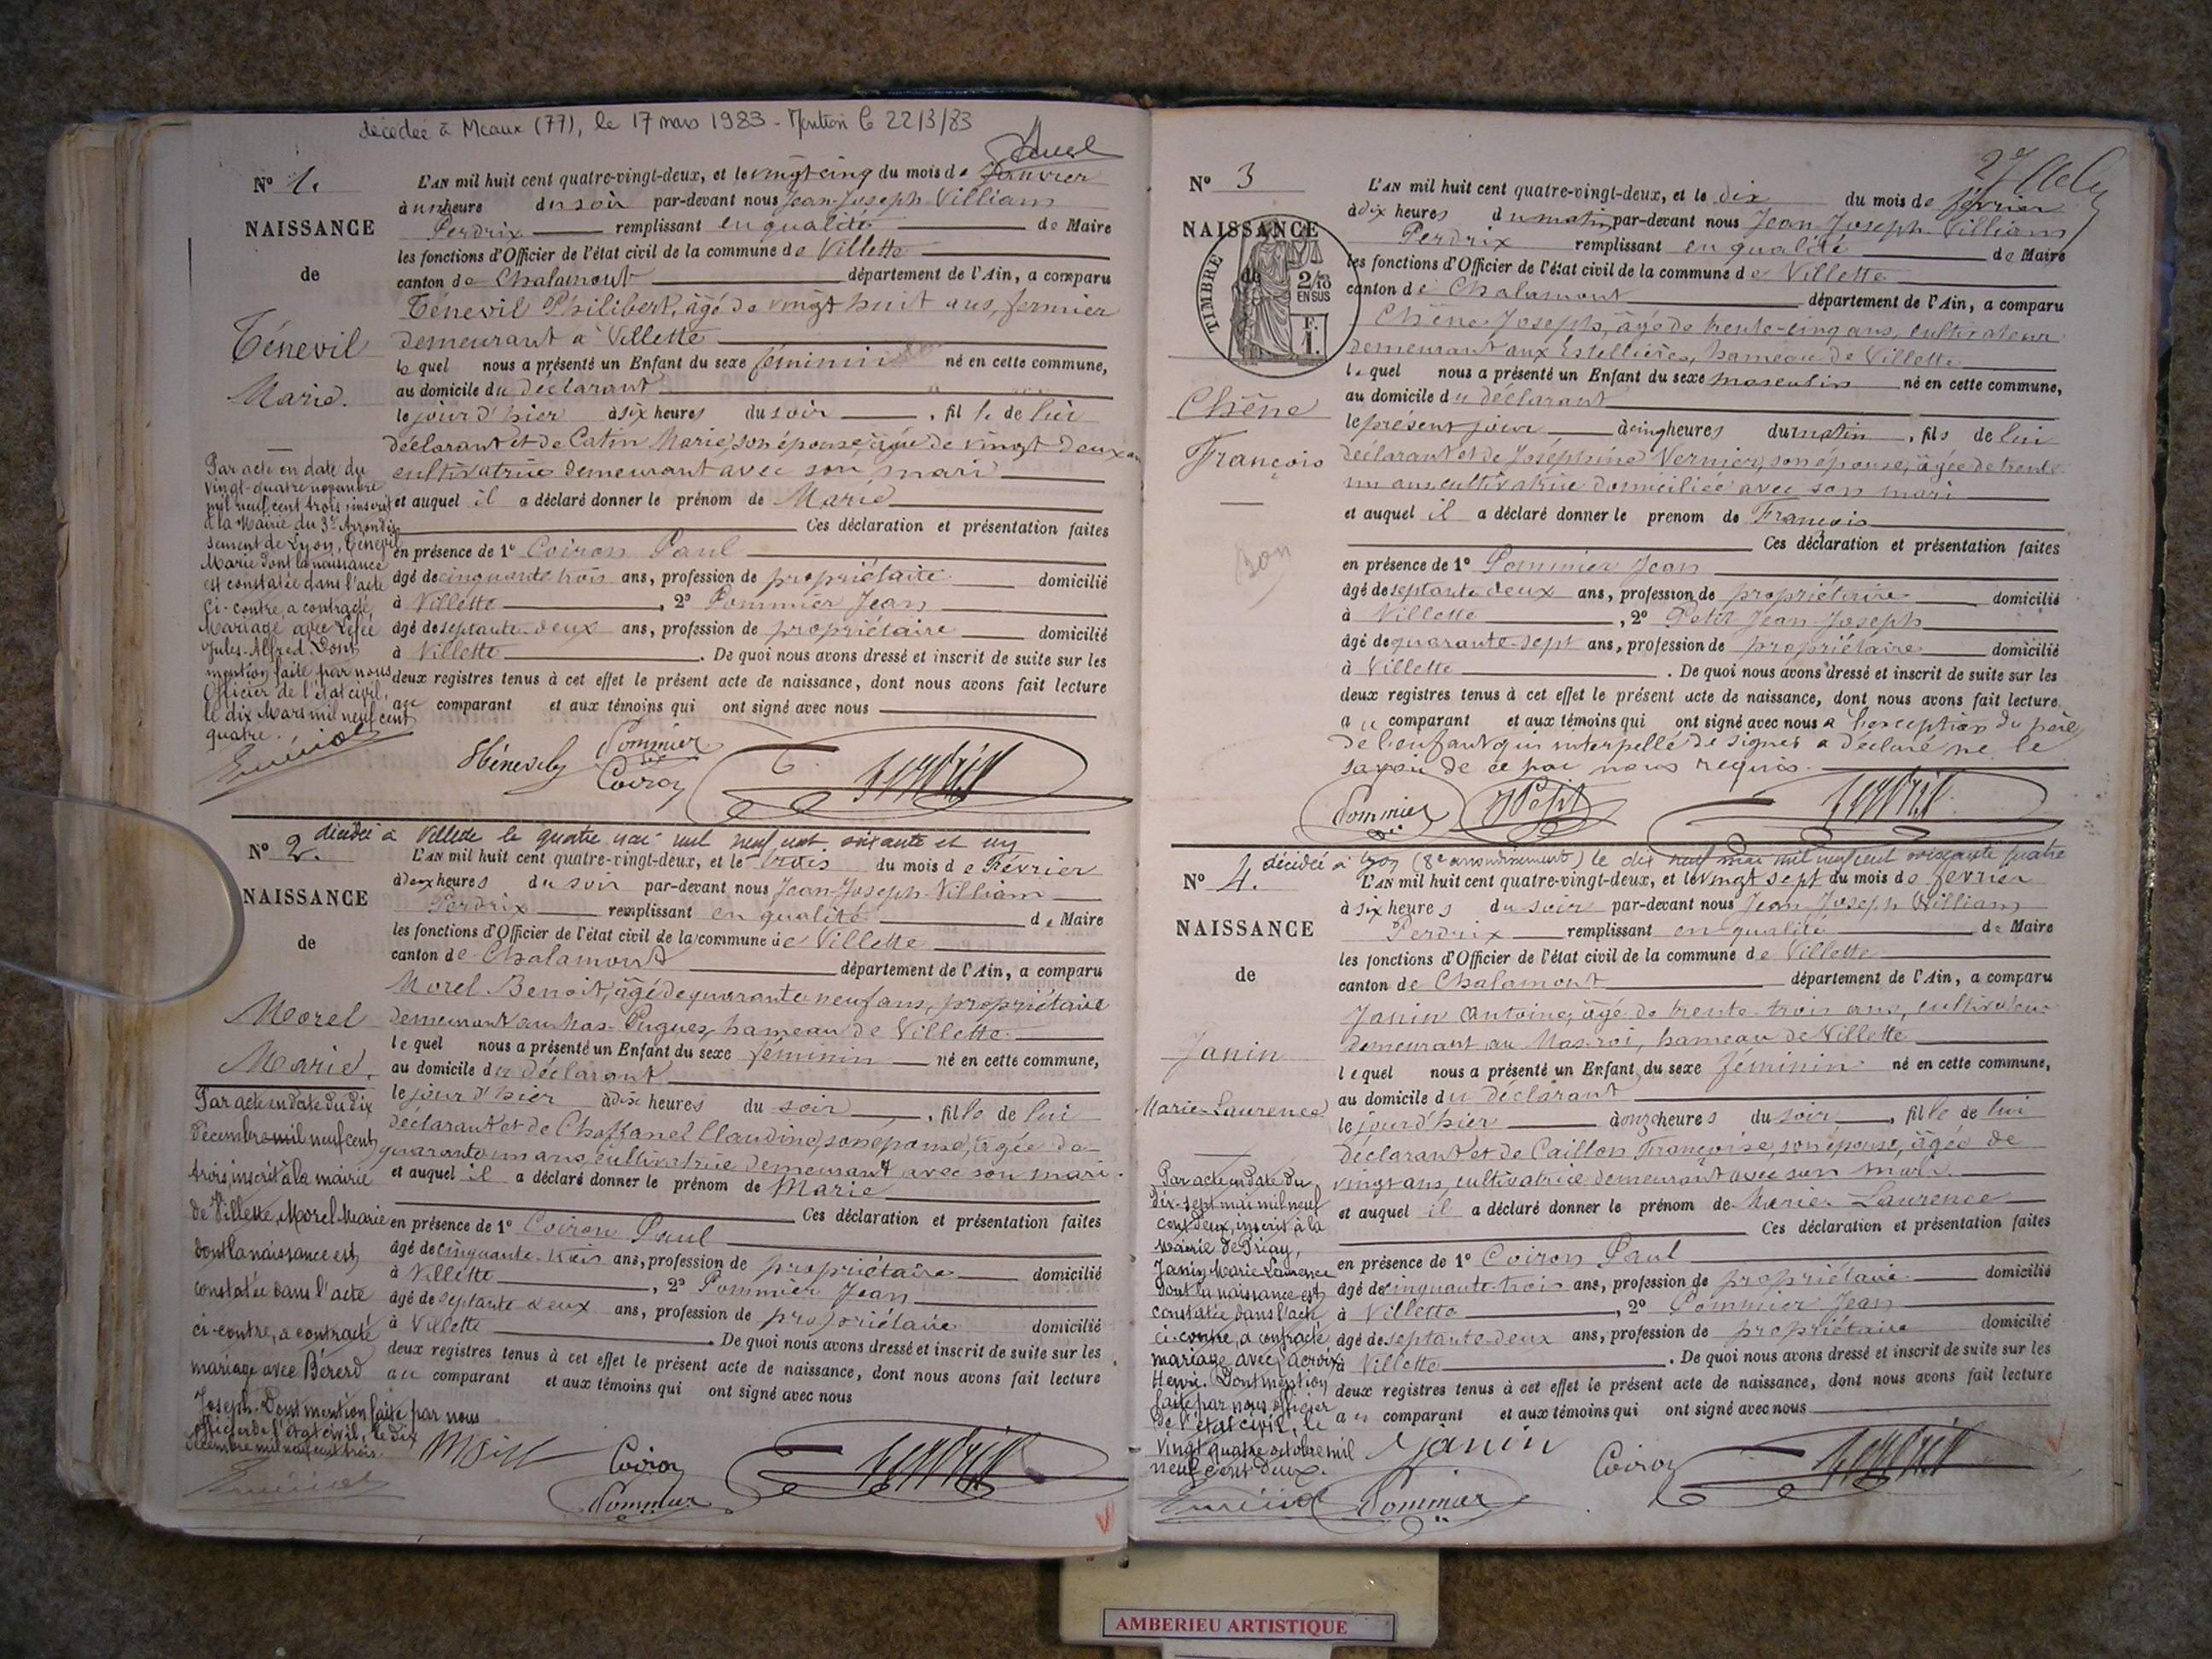 décédée à Meaux (77), le 17 mars 1983 - Mention le 22/3/83
N° 1.
NAISSANCE
de
Ténevil
Marie.
L'AN mil huit cent quatre-vingt-deux, et le vingt cinq du mois de Janvier
à une heure du soir par-devant nous Jean-Joseph Villiam
Perdrix remplissant en qualité de Maire
les fonctions d'Officier de l'état civil de la commune de Villette
canton de Chalamont département de l'Ain, a comparu
Ténevil Philibert, âgé de vingt huit ans, fermier
demeurant à Villette
lequel nous a présenté un Enfant du sexe féminin né en cette commune,
au domicile du déclarant
le jour d'hier à six heures du soir, fille de lui
déclarant et de Catin Marie, son épouse, âgée de vingt deux ans
cultivatrice demeurant avec son mari
et auquel il a déclaré donner le prénom de Marie
Ces déclaration et présentation faites
en présence de 1° Coiron Paul
âgé de cinquante trois ans, profession de propriétaire domicilié
à Villette, 2° Pommier Jean
âgé de septante-deux ans, profession de propriétaire domicilié
à Villette. De quoi nous avons dressé et inscrit de suite sur les
deux registres tenus à cet effet le présent acte de naissance, dont nous avons fait lecture
au comparant et aux témoins qui ont signé avec nous
Pommier
Coiron
Perdrix
Par acte en date du
vingt-quatre novembre
mil neuf cent trois, inscrit
à la Mairie du 3e Arrondis
sement de Lyon, Ténevil
Marie dont la naissance
est constatée dans l'acte
ci-contre, a contracté
Mariage avec
Jules-Alfred. Dont
mention faite par nous
Officier de l'état civil,
le dix Mars mil neuf cent
quatre.
N° 2.
décédée à Villette le quatre mai mil neuf cent soixante et un
NAISSANCE
de
Morel
Marie.
L'AN mil huit cent quatre-vingt-deux, et le trois du mois de Février
à deux heures du soir par-devant nous Jean-Joseph Villiam
Perdrix remplissant en qualité de Maire
les fonctions d'Officier de l'état civil de la commune de Villette
canton de Chalamont département de l'Ain, a comparu
Morel Benoit, âgé de quarante neuf ans, propriétaire
demeurant au Mas-Pugues, hameau de Villette
lequel nous a présenté un Enfant du sexe féminin né en cette commune,
au domicile du déclarant
le jour d'hier à dix heures du soir, fille de lui
déclarant et de Chaffanel Claudine, son épouse, âgée de
quarante un ans, cultivatrice demeurant avec son mari.
et auquel il a déclaré donner le prénom de Marie
Ces déclaration et présentation faites
en présence de 1° Coiron Paul
âgé de cinquante-trois ans, profession de propriétaire domicilié
à Villette, 2° Pommier Jean
âgé de septante deux ans, profession de propriétaire domicilié
à Villette. De quoi nous avons dressé et inscrit de suite sur les
deux registres tenus à cet effet le présent acte de naissance, dont nous avons fait lecture
au comparant et aux témoins qui ont signé avec nous
Coiron
Pommier
Perdrix
Par acte en date du dix
décembre mil neuf cent
trois, inscrit à la mairie
de Villette, Morel Marie
dont la naissance est
constatée dans l'acte
ci-contre, a contracté
mariage avec Bérerd
Joseph. Dont mention faite par nous
officier de l'état civil, le dix
décembre mil neuf cent trois.
N° 3
NAISSANCE
de
TIMBRE
2/10
EN SUS
F.
1.
Chêne
François
Bon
L'AN mil huit cent quatre-vingt-deux, et le dix du mois de février
à dix heures du matin par-devant nous Jean Joseph Villiam
Perdrix remplissant en qualité de Maire
les fonctions d'Officier de l'état civil de la commune de Villette
canton de Chalamont département de l'Ain, a comparu
Chêne Joseph, âgé de trente-cinq ans, cultivateur
demeurant aux Estellières, hameau de Villette
lequel nous a présenté un Enfant du sexe masculin né en cette commune,
au domicile du déclarant
le présent jour à cinq heures du matin, fils de lui
déclarant et de Joséphine Vernier, son épouse, âgée de trente
un ans, cultivatrice domiciliée avec son mari
et auquel il a déclaré donner le prenom de François
Ces déclaration et présentation faites
en présence de 1° Pommier Jean
âgé de septante deux ans, profession de propriétaire domicilié
à Villette, 2° Petit Jean-Joseph
âgé de quarante-sept ans, profession de propriétaire domicilié
à Villette. De quoi nous avons dressé et inscrit de suite sur les
deux registres tenus à cet effet le présent acte de naissance, dont nous avons fait lecture
au comparant et aux témoins qui ont signé avec nous à l'exception du père
de l'enfant qui interpellé de signer a déclaré ne le
savoir de ce par nous requis.
Pommier
Petit
Perdrix
N° 4.
décédée à Lyon (8e arrondissement) le dix neuf mai mil neuf cent soixante quatre
NAISSANCE
de
Janin
Marie-Laurence
L'AN mil huit cent quatre-vingt-deux, et le vingt sept du mois de février
à six heures du soir par-devant nous Jean Joseph Villiam
Perdrix remplissant en qualité de Maire
les fonctions d'Officier de l'état civil de la commune de Villette
canton de Chalamont département de l'Ain, a comparu
Janin Antoine, âgé de trente-trois ans, cultivateur
demeurant au Mas-roi, hameau de Villette
lequel nous a présenté un Enfant du sexe féminin né en cette commune,
au domicile du déclarant
le jour d'hier à onze heures du soir, fille de lui
déclarant et de Caillon Françoise, son épouse, âgée de
vingt ans, cultivatrice demeurant avec son mari.
et auquel il a déclaré donner le prénom de Marie-Laurence
Ces déclaration et présentation faites
en présence de 1° Coiron Paul
âgé de cinquante-trois ans, profession de propriétaire domicilié
à Villette, 2° Pommier Jean
âgé de septante-deux ans, profession de propriétaire domicilié
à Villette. De quoi nous avons dressé et inscrit de suite sur les
deux registres tenus à cet effet le présent acte de naissance, dont nous avons fait lecture
au comparant et aux témoins qui ont signé avec nous
Janin
Coiron
Perdrix
Pommier
Par acte en date du
dix-sept mai mil neuf
cent deux, inscrit à la
mairie de Priay,
Janin Marie Laurence
dont la naissance est
constatée dans l'acte
ci-contre, a contracté
mariage avec
Henri. Dont mention
faite par nous officier
de l'état civil, le
vingt quatre octobre mil
neuf cent deux.
AMBERIEU ARTISTIQUE